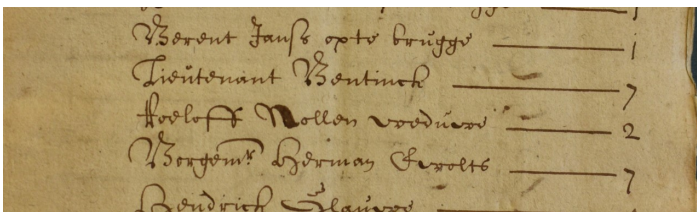 Berent Janss opte brugge 1
Lieutenant Bentinck 7
Roeloff Mollen weduwe 2
Borgemr Herman Ewolts 7
Hendrick